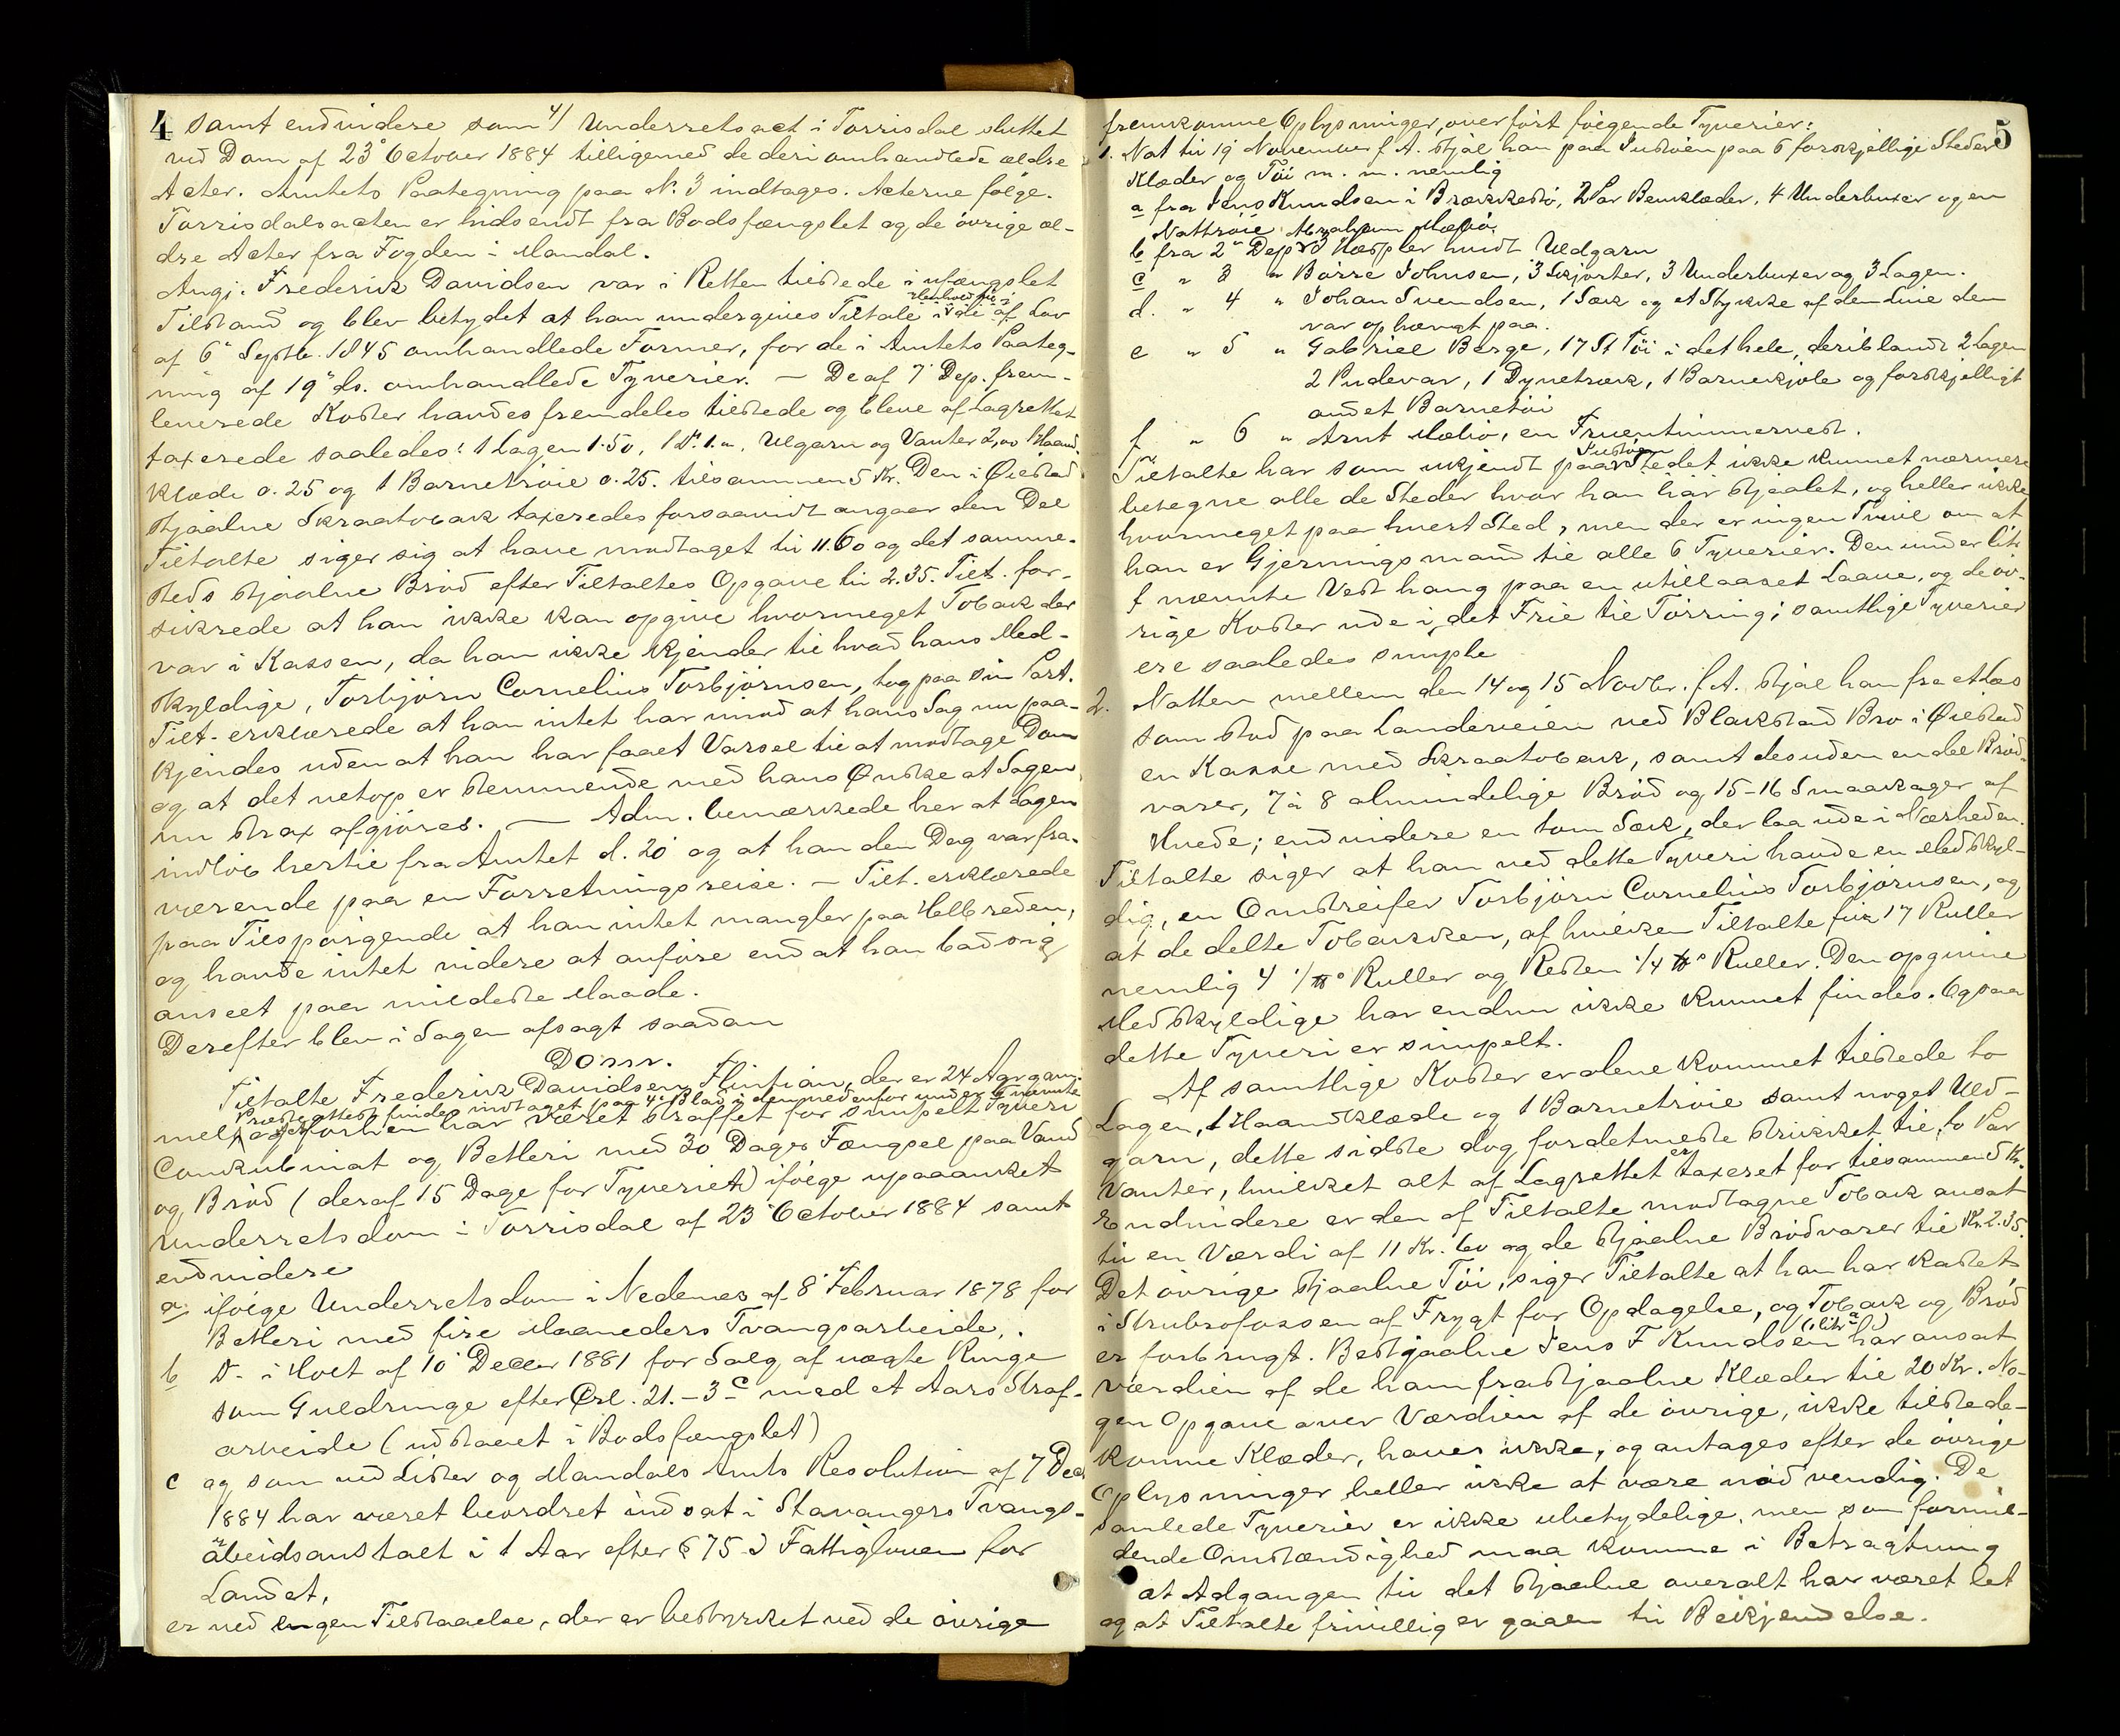 4
samt endvidere som 4/ Underretsact i Torrisdal sluttet
ved Dom af 23' October 1884 tilligemed de deri omhandlede ældre
Acter. Amtets Paategning paa N. 3 indtages. Acterne følge.
Torrisdalsacten er hidsendt fra Bodsfængslet og de øvrige æl-
dre Acter fra Fogden i Mandal.
Angj. Frederick Davidsen var i Retten tilstede i ufængslet
Tilstand og blev betydet at han undergives Tiltale i de af Lov
af 6' Septb. 1845 omhandlede Former, for de i Amtets Paateg-
ning af 19' ds. omhandlede Tyverier. — De af 7' Dep. frem-
leverede Koster havdes fremdeles tilstede og bleve af Lagrettet
taxerede saaledes: 1 Lagen 1.50, 1 Do. 1.", Ulgarn og Vanter 2,00 Haand-
klæde 0.25 og 1 Barnetrøie 0.25. tilsammen 5 Kr. Den i Øiestad
stjaalne Skraatobak taxeredes forsaavidt angaar den Del
Tiltalte siger sig at have modtaget til 11.60 og det samme-
steds stjaalne Brød efter Tiltaltes Opgave til 2.35. Tilt. for-
sikrede at han ikke kan opgive hvormeget Tobak der
var i Kassen, da han ikke kjender til hvad hans Med-
skyldige, Torbjørn Cornelius Torbjørnsen, tog paa sin Part.
Tilt. erklærede at han intet har imod at hans Sag nu paa-
kjendes uden at han har faaet Varsel til at modtage Dom
og at det netop er stemmende med hans Ønske at Sagen
nu strax afgjøres. — Adm. bemærkede her at Sagen
indløb hertil fra Amtet d. 20' og at han den Dag var fra-
værende paa en Forretningsreise. — Tilt. erklærede
paa Tilspørgende at han intet mangler paa Helbreden,
og havde intet videre at anføre end at han bad sig
anseet paa mildeste Maade.
Derefter blev i Sagen afsagt saadan
Dom.
Tiltalte Frederick Davidsen Flintian, der er 24 Aar gam-
Præsteattest findes indtaget paa 4' Blad i den nedenfor under nævnte
mel, og forhen har været straffet for simpelt Tyveri
Conkubinat og Betleri med 30 Dages Fængsel paa Vand
og Brød (deraf 15 Dage for Tyveriet) ifølge upaaanket
Underretsdom i Torrisdal af 23' October 1884 samt
endvidere
a. ifølge Underretsdom i Nedenes af 8' Februar 1878 for
Betleri med fire Maaneders Tvangsarbeide,
b Do. i Holt af 10' Decbr 1881 for Salg af uægte Ringe
som Guldringe efter Crl. 21.-3-c med et Aars Straf-
arbeide (udstaaet i Bodsfængslet)
c og som ved Lister og Mandals Amts Resolution af 7 Decb
1884 har været beordret indsat i Stavangers Tvangs-
arbeidsanstalt i 1 Aar efter § 75 Fattigloven for
Landet,
er ved egen Tilstaaelse, der er bestyrket ved de øvrige
5
fremkomne Oplysninger, overført følgende Tyverier:
1. Nat til 19' November f. A. stjal han paa paa 6 forskjellige Steder
Klæder og Tøi m. m. nemlig
a fra Jens Knudsen i Brækkestø, 2 Par Benklæder, 4 Underbuxer og en
Nattrøie
b fra 2' Dep Abraham hvidt Uldgarn
c " 3 " Børre Johnsen, 3 Skjorter, 3 Underbuxer og 3 Lagen.
d. " 4 " Johan Svendsen, 1 Sæk og et Stykke af den Line den
var ophængt paa.
e " 5 " Gabriel Berge, 17 St Tøi i det hele, deriblandt 2 Lagen
2 Pudevar, 1 Dynetræk, 1 Barnekjole og forskjelligt
andet Barnetøi
f " 6 " Arnt Mølbo, en Fruentimmervest.
Tiltalte har som ukjendt paa Stedet ikke kunnet nærmere
betegne alle de Steder hvor han har stjaalet, og heller ikke
hvormeget paa hvert Sted, men der er ingen Tvivl om at
han er Gjerningsmand til alle 6 Tyverier. Den under litr
f nævnte Vest hang paa en utillaaset Laave, og de øv-
rige Koster ude i det Frie til Tørring; samtlige Tyverier
ere saaledes simple
2. Natten mellem den 14 og 15 Novbr. f. A. stjal han fra et Læs
som stod paa Landeveien ved Blakstad Bro i Øiestad
en Kasse med Skraatobak, samt desuden endel Brød-
varer, 7 à 8 almindelige Brød og 15-16 Smaakager af
Hvede; endvidere en tom Sæk, der laa ude i Nærheden.
Tiltalte siger at han ved dette Tyveri havde en Medskyl-
dig, en Omstreifer Torbjørn Cornelius Torbjørnsen, og
at de delte Tobakken, af hvilken Tiltalte fik 17 Ruller
nemlig 4 1/1 ℔ Ruller og Resten 1/4 ℔ Ruller. Den opgivne
Medskyldige har endnu ikke kunnet findes. Ogsaa
dette Tyveri er simpelt.
Af samtlige Koster er alene kommet tilstede to
Lagen, 1 Haandklæde og 1 Barnetrøie samt noget Uld-
garn, dette sidste dog fordetmeste strikket til to Par
Vanter, hvilket alt af Lagrettet er taxeret for tilsammen 5 Kr.
Endvidere er den af Tiltalte modtagne Tobak ansat
til en Værdi af 11 Kr. 60 og de stjaalne Brødvarer til Kr. 2.35.
Det øvrige stjaalne Tøi, siger Tiltalte at han har kastet
i Strubrofossen af Frygt for Opdagelse, og Tobak og Brød
er forbrugt. Bestjaalne Jens F Knudsen (litr a) har ansat
værdien af de ham frastjaalne Klæder til 20 Kr. No-
gen Opgave over Værdien af de øvrige, ikke tilstede-
komne Klæder, haves ikke, og antages efter de øvrige
Oplysninger heller ikke at være nødvendig. De
samlede Tyverier er ikke ubetydelige, men som formil-
dende Omstændighed maa komme i Betragtning
at Adgangen til det stjaalne overalt har været let
og at Tiltalte frivillig er gaaen til Bekjendelse.